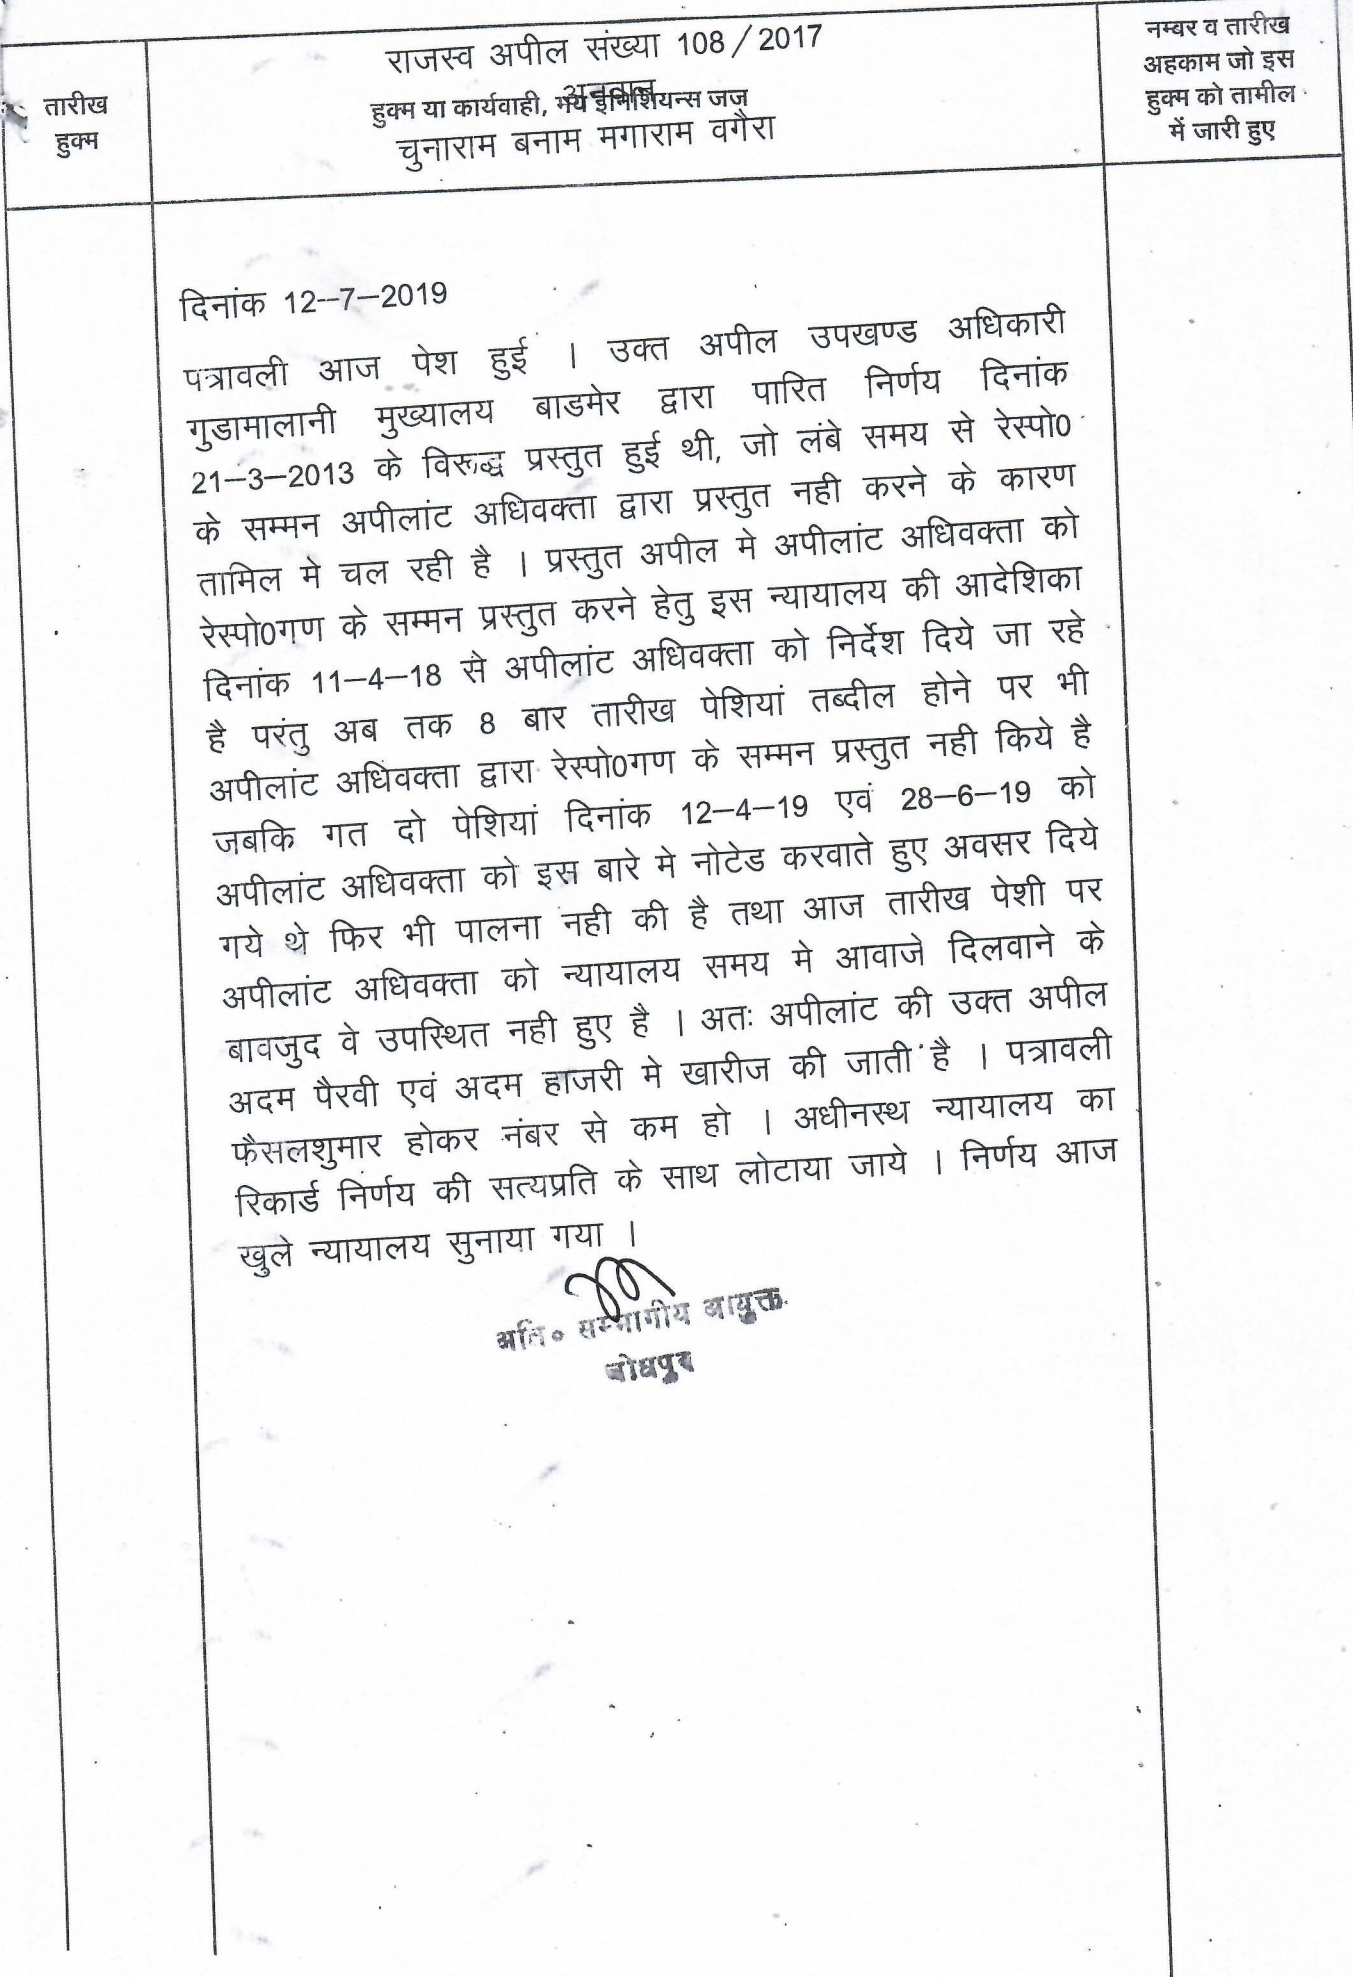 राजस्व अपील संख्या 108/2017
अनवान
हुक्म या कार्यवाही, मय इनिशियन्स जज
चुनाराम बनाम मगाराम वगैरा
तारीख
हुक्म
नम्बर व तारीख
अहकाम जो इस
हुक्म को तामील
में जारी हुए
दिनांक 12--7-2019
पत्रावली आज पेश हुई । उक्त अपील उपखण्ड अधिकारी
गुडामालानी मुख्यालय बाडमेर द्वारा पारित निर्णय दिनांक
21-3-2013 के विरूद्ध प्रस्तुत हुई थी, जो लंबे समय से रेस्पो0
के सम्मन अपीलांट अधिवक्ता द्वारा प्रस्तुत नही करने के कारण
तामिल मे चल रही है । प्रस्तुत अपील मे अपीलांट अधिवक्ता को
रेस्पो0गण के सम्मन प्रस्तुत करने हेतु इस न्यायालय की आदेशिका
दिनांक 11-4-18 से अपीलांट अधिवक्ता को निर्देश दिये जा रहे
है परंतु अब तक 8 बार तारीख पेशियां तब्दील होने पर भी
अपीलांट अधिवक्ता द्वारा रेस्पो0गण के सम्मन प्रस्तुत नही किये है
जबकि गत दो पेशियां दिनांक 12-4-19 एवं 28-6-19 को
अपीलांट अधिवक्ता को इस बारे मे नोटेड करवाते हुए अवसर दिये
गये थे फिर भी पालना नही की है तथा आज तारीख पेशी पर
अपीलांट अधिवक्ता को न्यायालय समय मे आवाजे दिलवाने के
बावजुद वे उपस्थित नही हुए है । अतः अपीलांट की उक्त अपील
अदम पैरवी एवं अदम हाजरी मे खारीज की जाती है । पत्रावली
फैसलशुमार होकर नंबर से कम हो । अधीनस्थ न्यायालय का
रिकार्ड निर्णय की सत्यप्रति के साथ लोटाया जाये । निर्णय आज
खुले न्यायालय सुनाया गया ।
अति० सम्भागीय आयुक्त
जोधपुर